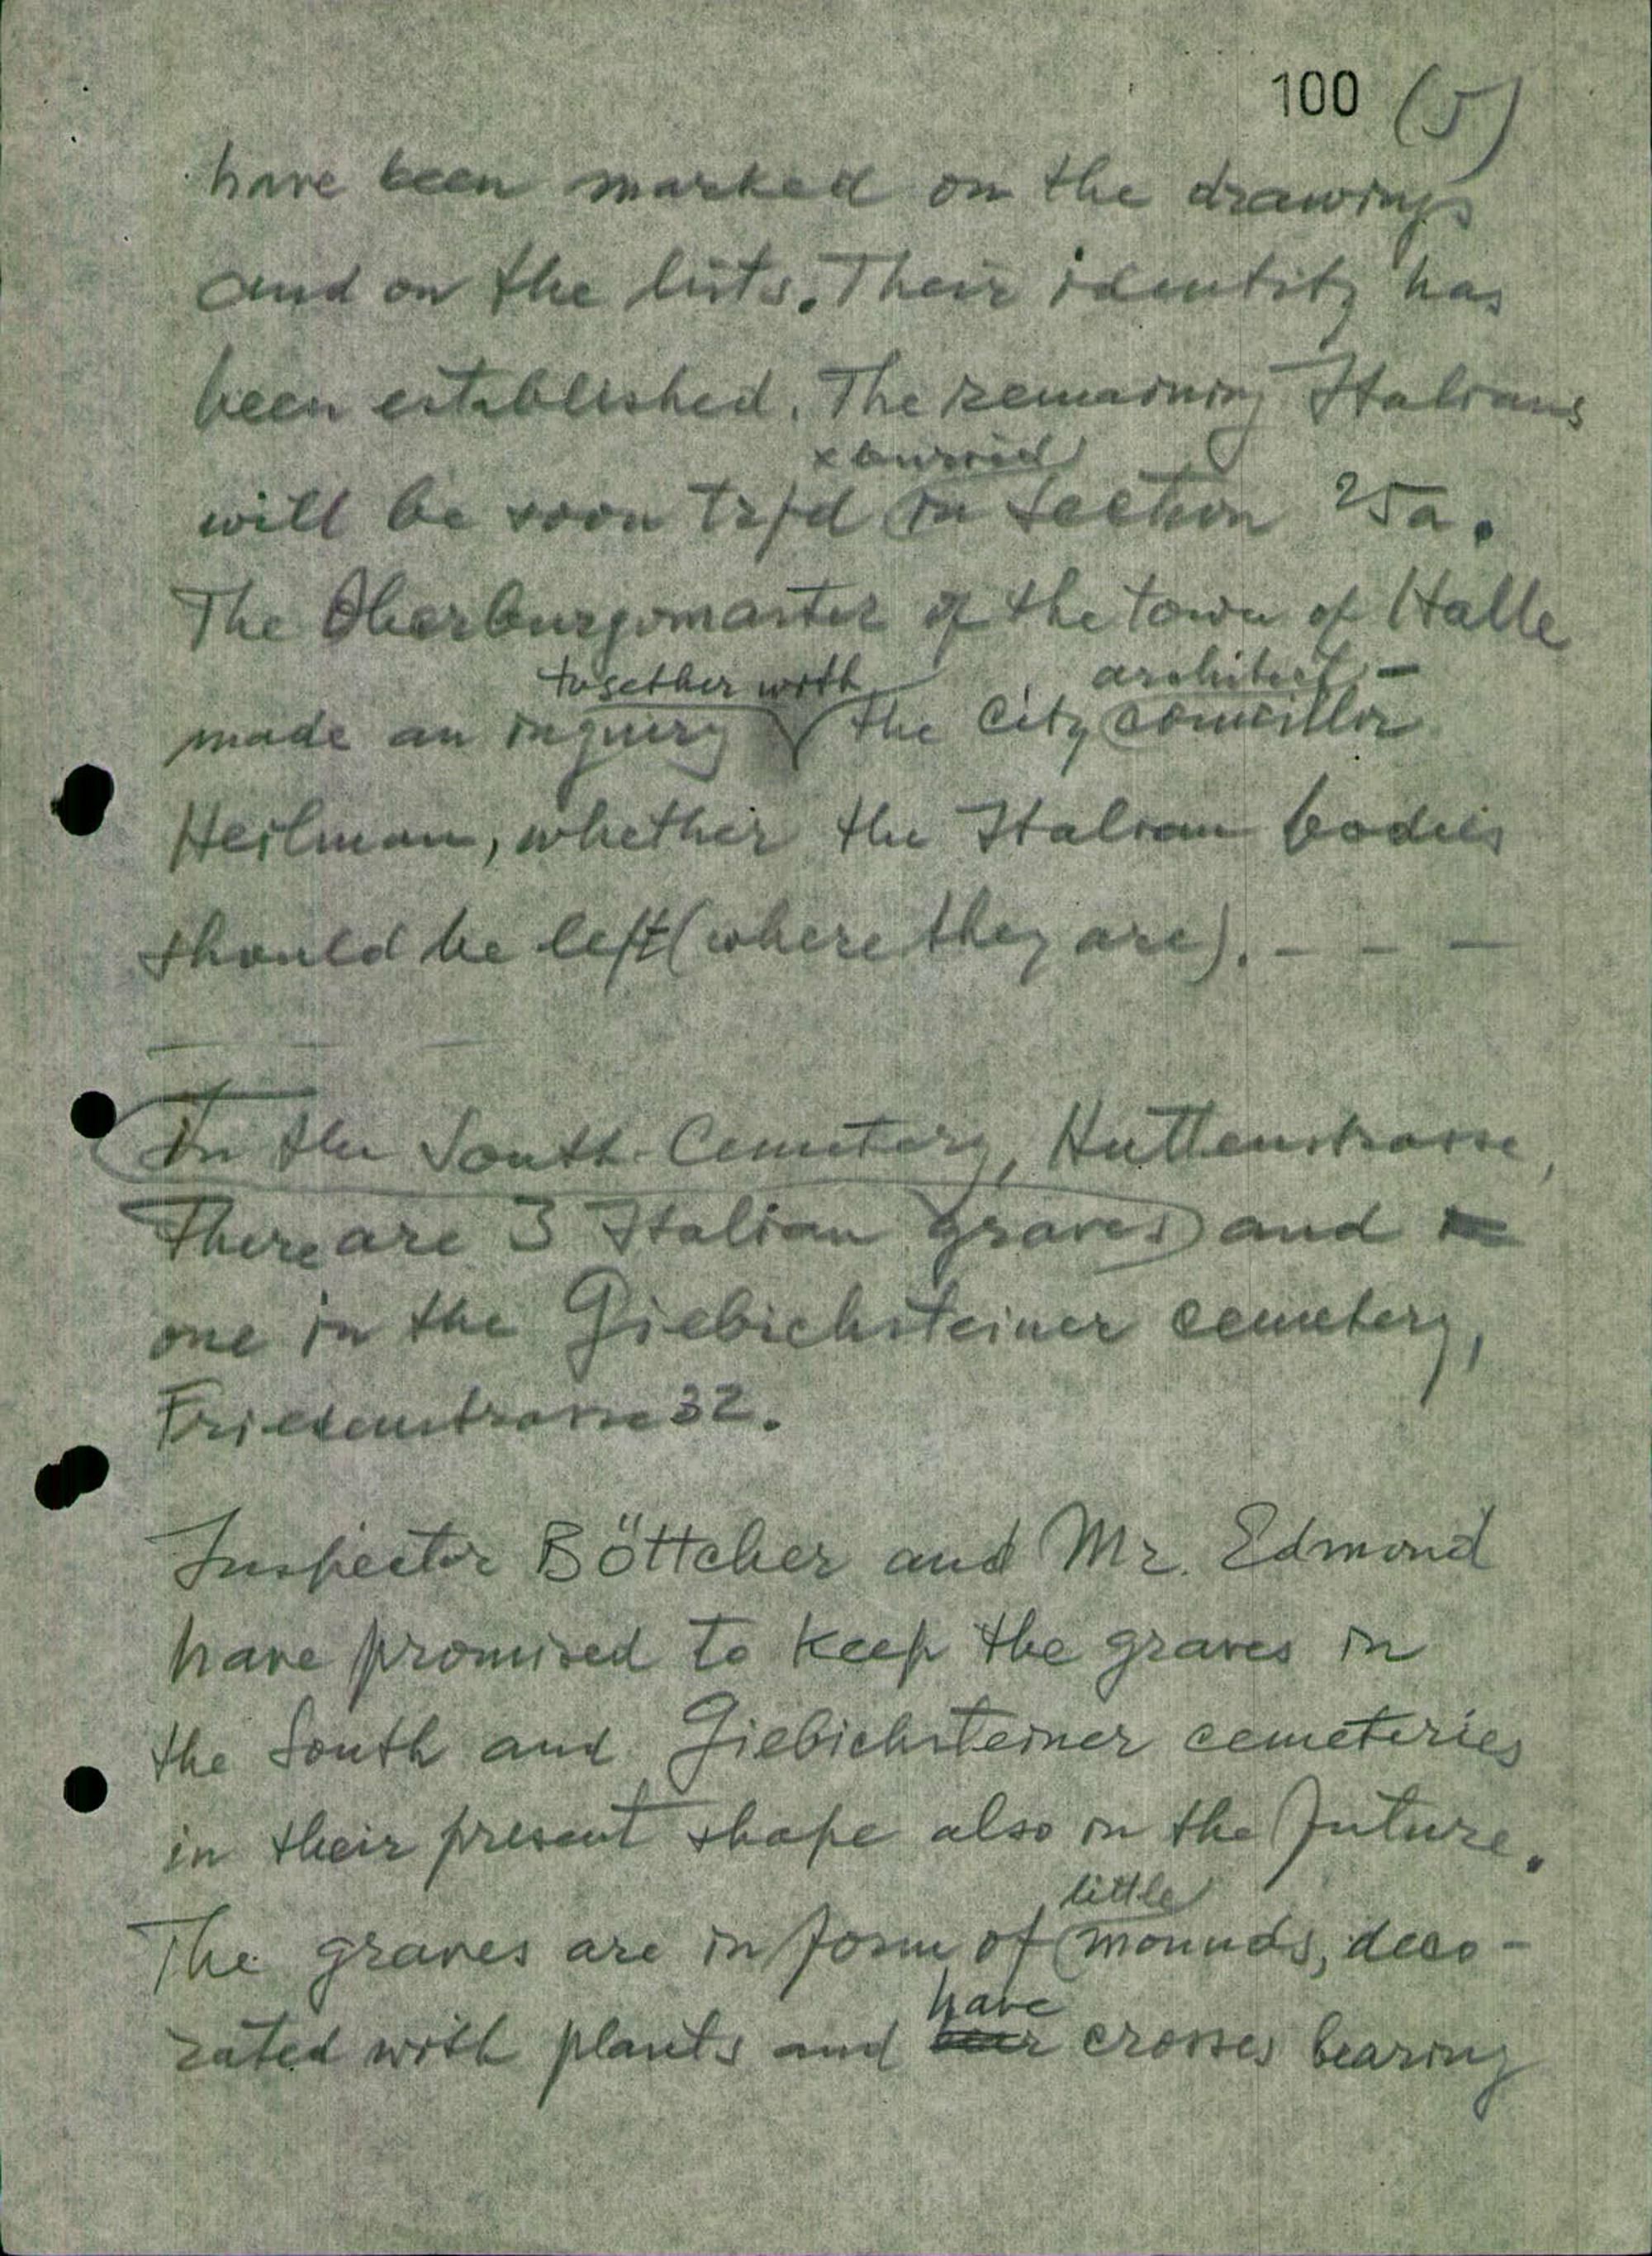 100 (5)
have been marked on the drawings
and on the lists. Their identity has
been established. The remaining Italians
x burried
will be soon trfd in section 25a.
The Oberburgomaster of the town of Halle
together with architect -
made an inquiry the City councillor
Heilman, whether the Italian bodies
should be left (where they are). - - -
In the South-Cemetery, Huttenstrasse,
There are 3 Italian graves and
one in the Giebichsteiner cemetery,
Friesenstrasse 32.
Inspector Böttcher and Mr. Edmond
have promised to keep the graves in
the South and Giebichsteiner cemeteries
in their present shape also in the future.
little
The graves are in form of mounds, deco-
have
rated with plants and bear crosses bearing